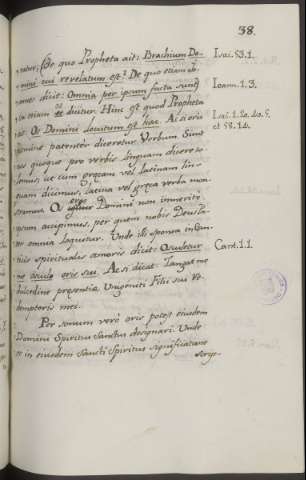 38.
De quo Propheta ait: Brachium Do- Isai. 53.1.
mini cui revelatum est? De quo etiam Jo-
annes dicit: Omnia per ipsum facta sunt; Ioann. 1.3.
et dicitur. Hinc est quod Propheta
ait: Os Domini locutum est haec. Ac si oris Isai. 1.20. 40.5.
nomine patenter diceretur Verbum. Sicut et 58.14.
nos quoque pro verbis linguam dicere so-
lemus, ut cum graecam vel latinam lin-
guam dicimus, latina vel graeca verba mon-
stramus. Os ergo Domini non immerito
ipsum accipimus, per quem nobis Deus Pa-
ter omnia loquitur. Unde illi sponsa in Can-
ticis spiritualis amoris dicit: Osculetur Cant. 1.1.
me osculo oris sui. Ac si dicat: Tangat me
dulcedine praesentiae Unigeniti Filii sui Re-
demptoris mei.
Per sonum vero oris potest ejusdem
Domini Spiritus Sanctus designari. Unde
et in ejusdem Sancti Spiritus significatione